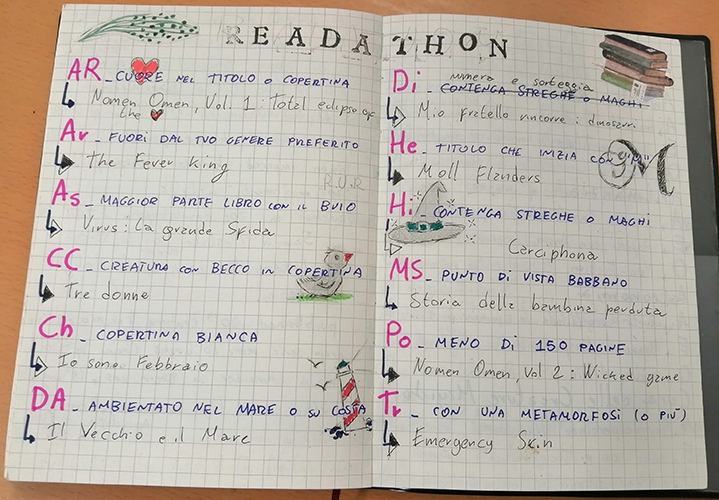 READATHON
AR_CUORE NEL TITOLO O COPERTINA
Nomen Omen, Vol. 1: Total eclipse of
the
Ar_ FUORI DAL TUO GENERE PREFERITO
the Fever king
R.U.R
As_ MAGGIOR PARTE LIBRO CON IL BUIO
Virus: La grande Sfida
CC_ CREATURA CON BECCO IN COPERTINA
Tre donne
Ch_ COPERTINA BIANCA
Io sono Febbraio
DA_ AMBIENTATO NEL MARE O SU COSTA
Il Vecchio e il Mare
numera e sorteggia
Di_ CONTENGA STREGHE O MAGHI
Mio fratello rincorre i dinosauri
He_ TITOLO CHE INIZIA CON "M"
M
Moll Flanders
Hi_ CONTENGA STREGHE O MAGHI
Carciphona
MS_ PUNTO DI VISTA BABBANO
Storia della bambina perduta
Po_ MENO DI 150 PAGINE
Nomen Omen, Vol 2: Wicked game
Tr_ CON UNA METAMORFOSI (O PIÙ)
Emergency Skin